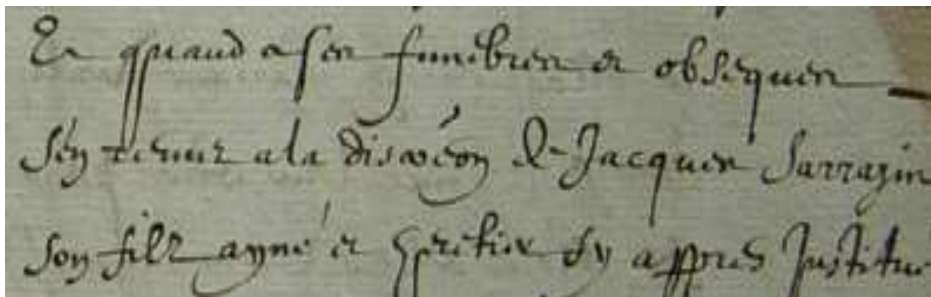 Et quand a ses funebres et obseques
s'en remet a la discrêon de Jacques Sarrazin
son filz ayné et heretier cy appres Institué